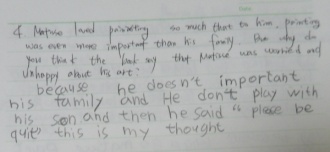 4. Matisse loved painting so much that to him, painting
was even more important than his family. But why do
you think the book say that Matisse was worried and
unhappy about his art?
because he doesn't important
his family and He don't play with
his son and then he said "please be
quite this is my thought